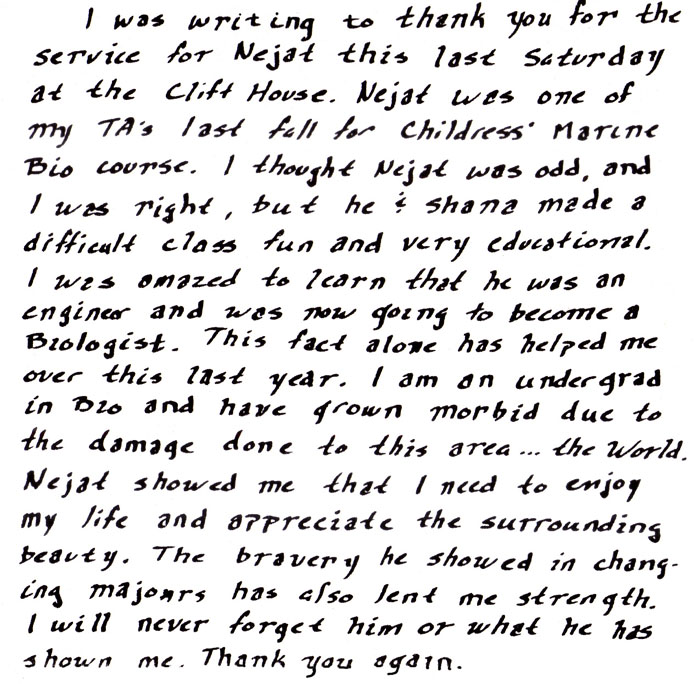 I was writing to thank you for the
service for Nejat this last Saturday
at the Cliff House. Nejat was one of
my TA's last fall for Childress' Marine
Bio course. I thought Nejat was odd, and
I was right, but he & Shana made a
difficult class fun and very educational.
I was amazed to learn that he was an
engineer and was now going to become a
Biologist. This fact alone has helped me
over this last year. I am an undergrad
in Bio and have grown morbid due to
the damage done to this area... the World.
Nejat showed me that I need to enjoy
my life and appreciate the surrounding
beauty. The bravery he showed in chang-
ing majours has also lent me strength.
I will never forget him or what he has
shown me. Thank you again.